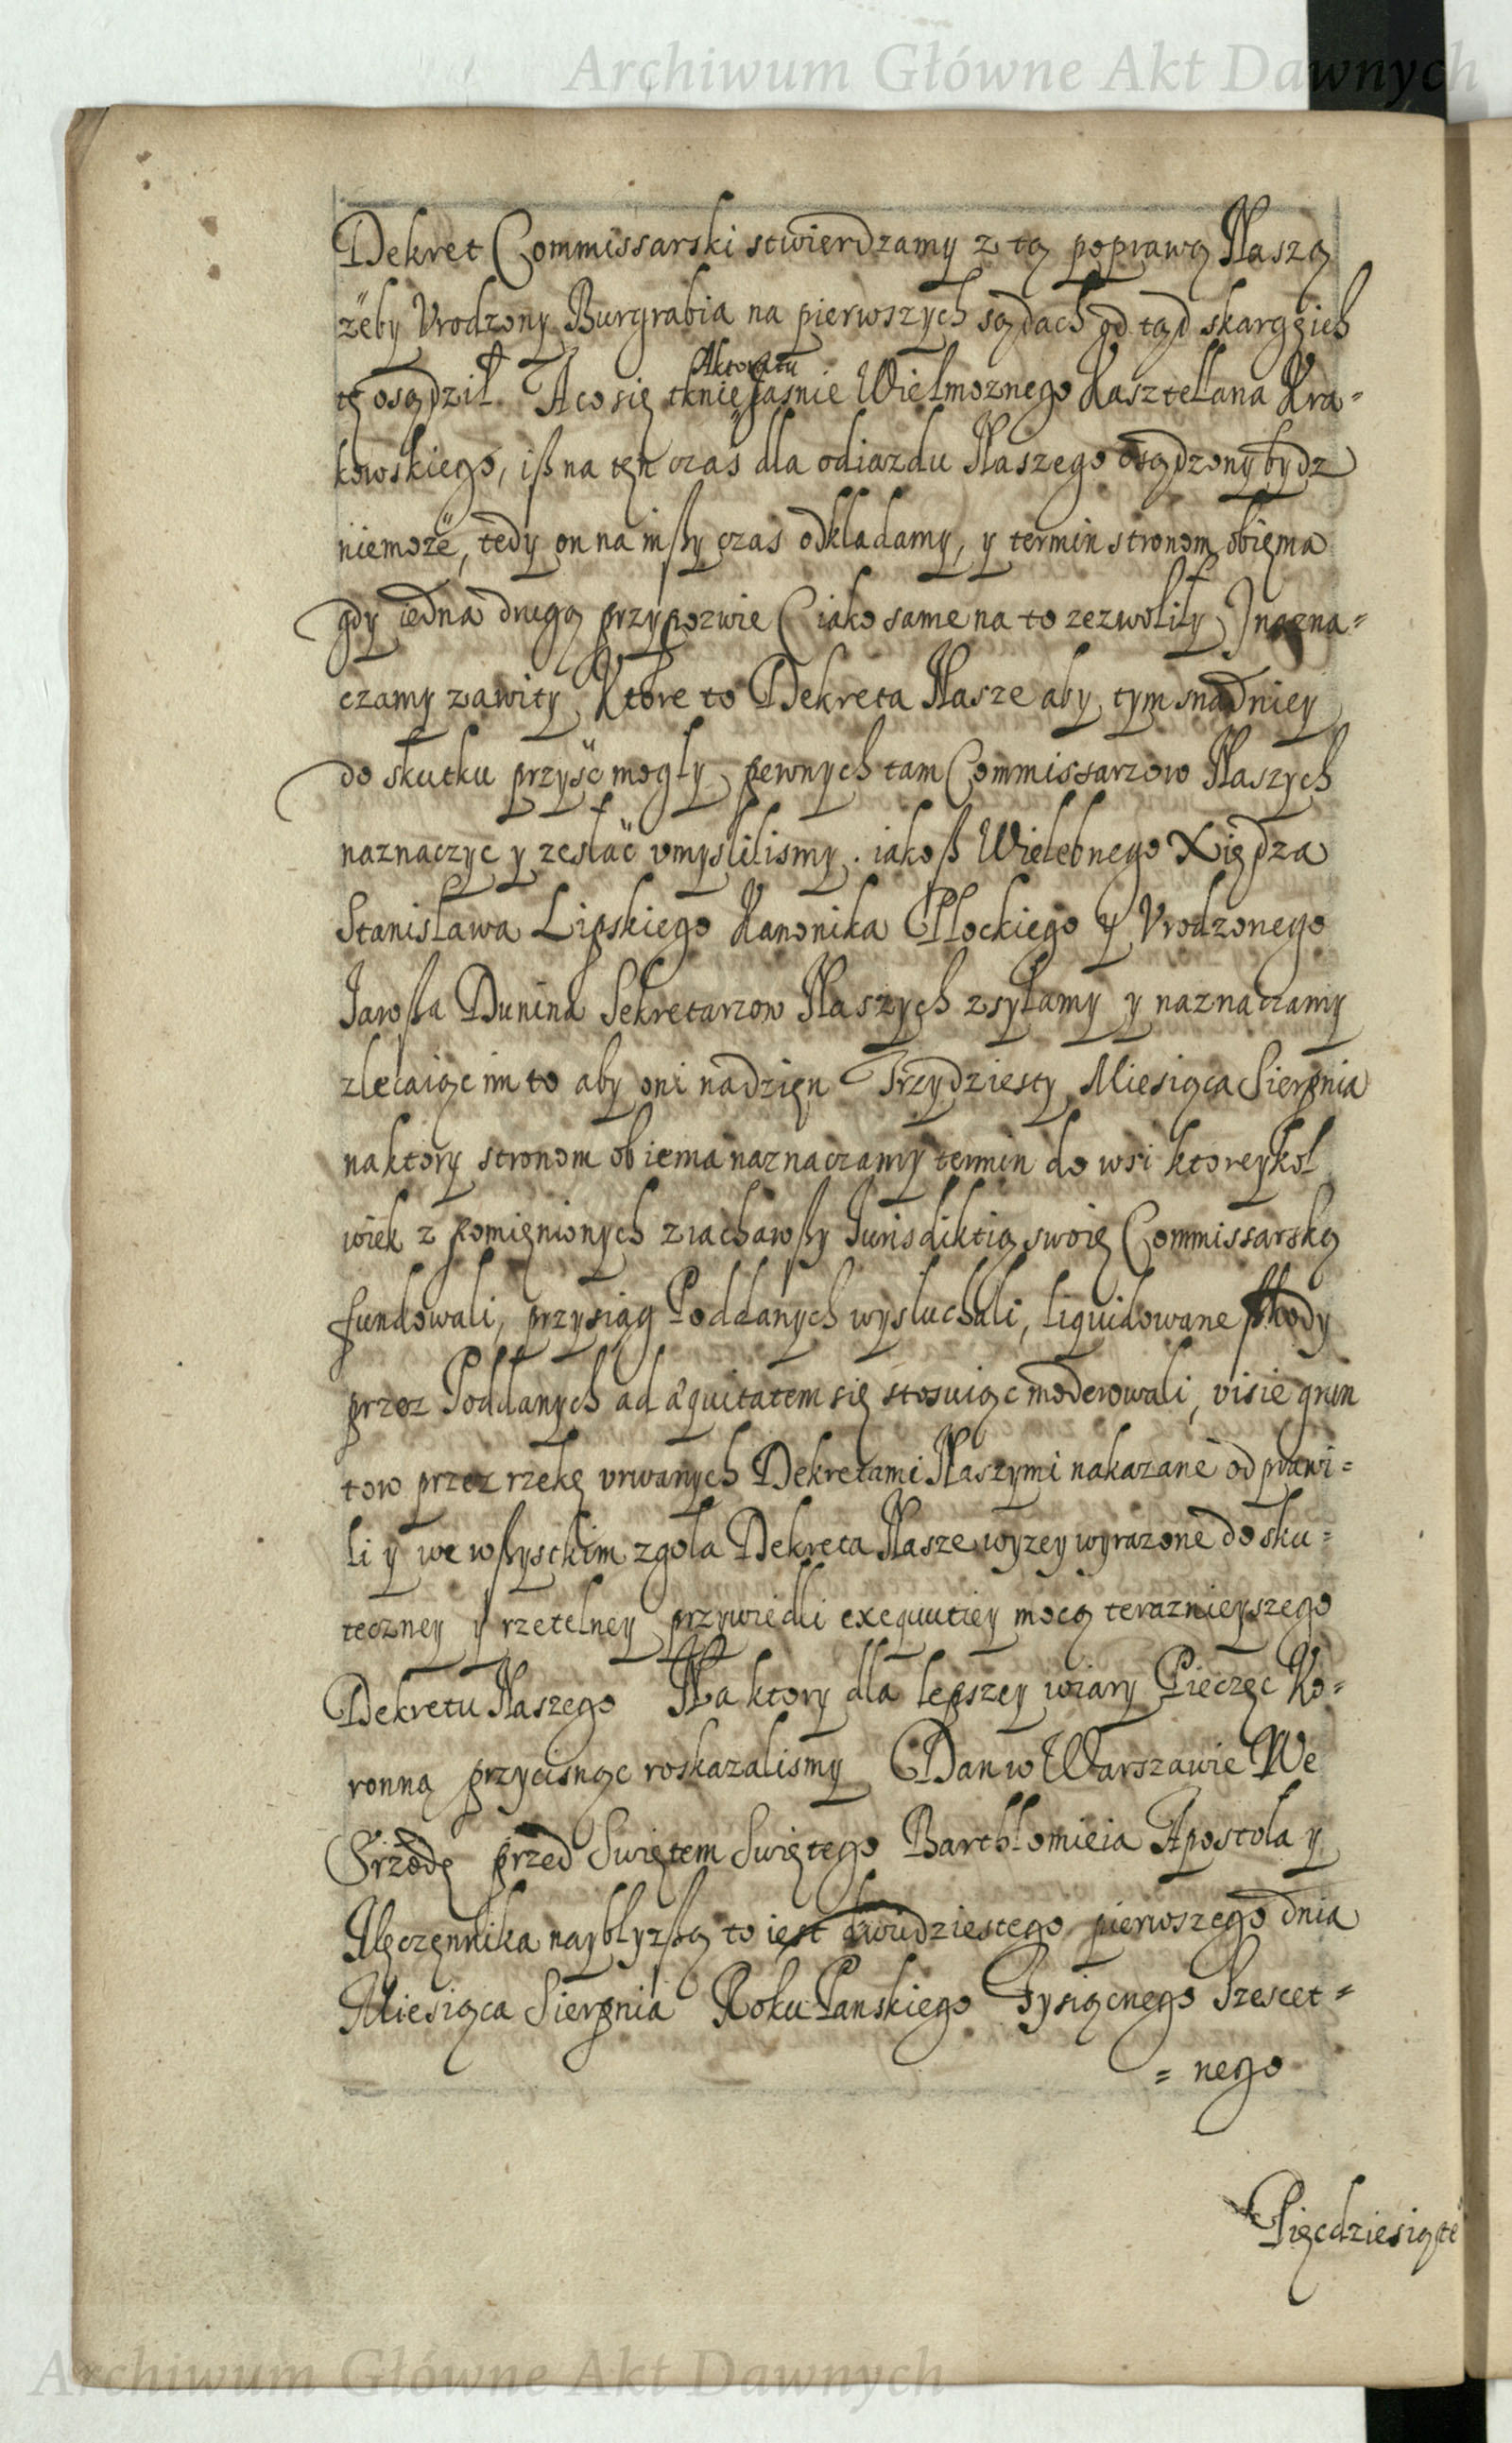 Archiwum Główne Akt Dawnych
Dekret Commissarski stwierdzamy z tą poprawą Naszą
żeby Vrodzony Burgrabia na pierwszych sądach od tąd skargę ich
tę osądził. A co się tknie Aktoratu Jasnie Wielmoznego Kasztellana Kra-
kowskiego, iß na ten czas dla odiazdu Naszego osądzony bydz
niemoże, tedy on na inßy czas odkładamy, y termin stronom obiema
gdy iedna drugą przypozwie (iako same na to zezwoliły) nazna-
czamy zawity. Ktore to Dekreta Nasze aby tym snadniey
do skutku przyść mogły, pewnych tam Commissarzow Naszych
naznaczyc y zesłać vmyslilismy. iakoß Wielebnego Xiędza
Stanisława Lipskiego Kanonika Płockiego y Vrodzonego
Jawßa Dunina Sekretarzow Naszych zsyłamy y naznaczamy
zlecaiąc im to aby oni na dzien Trzydziesty Miesiąca Sierpnia
na ktory stronom obiema naznaczamy termin do wsi ktoreykol
wiek z pomienionych ziachawßy Jurisdiktią swoię Commissarską
fundowali, przysiąg Poddanych wysluchali, liquidowane ßkody
przez Poddanych ad æquitatem się stosuiąc moderowali, visie grun
tow przez rzekę vrwanych Dekretami Naszymi nakazane odprawi=
li y we wßystkim zgoła Dekreta Nasze wyzey wyrazone do sku=
teczney y rzetelney przywiedli exequutiey mocą teraznieyszego
Dekretu Naszego Na ktory dla lepszey wiary Pieczęc Ko=
ronną przycisnąc roskazalismy Dan w Warszawie We
Srzodę przed Swiętem Swiętego Barthłomieia Apostoła y
Męczennika nayblyzßą to iest dwudziestego pierwszego dnia
Miesiąca Sierpnia Roku Panskiego Tysiącnego Szescet=
= nego
Pięcdziesiąte
Archiwum Główne Akt Dawnych